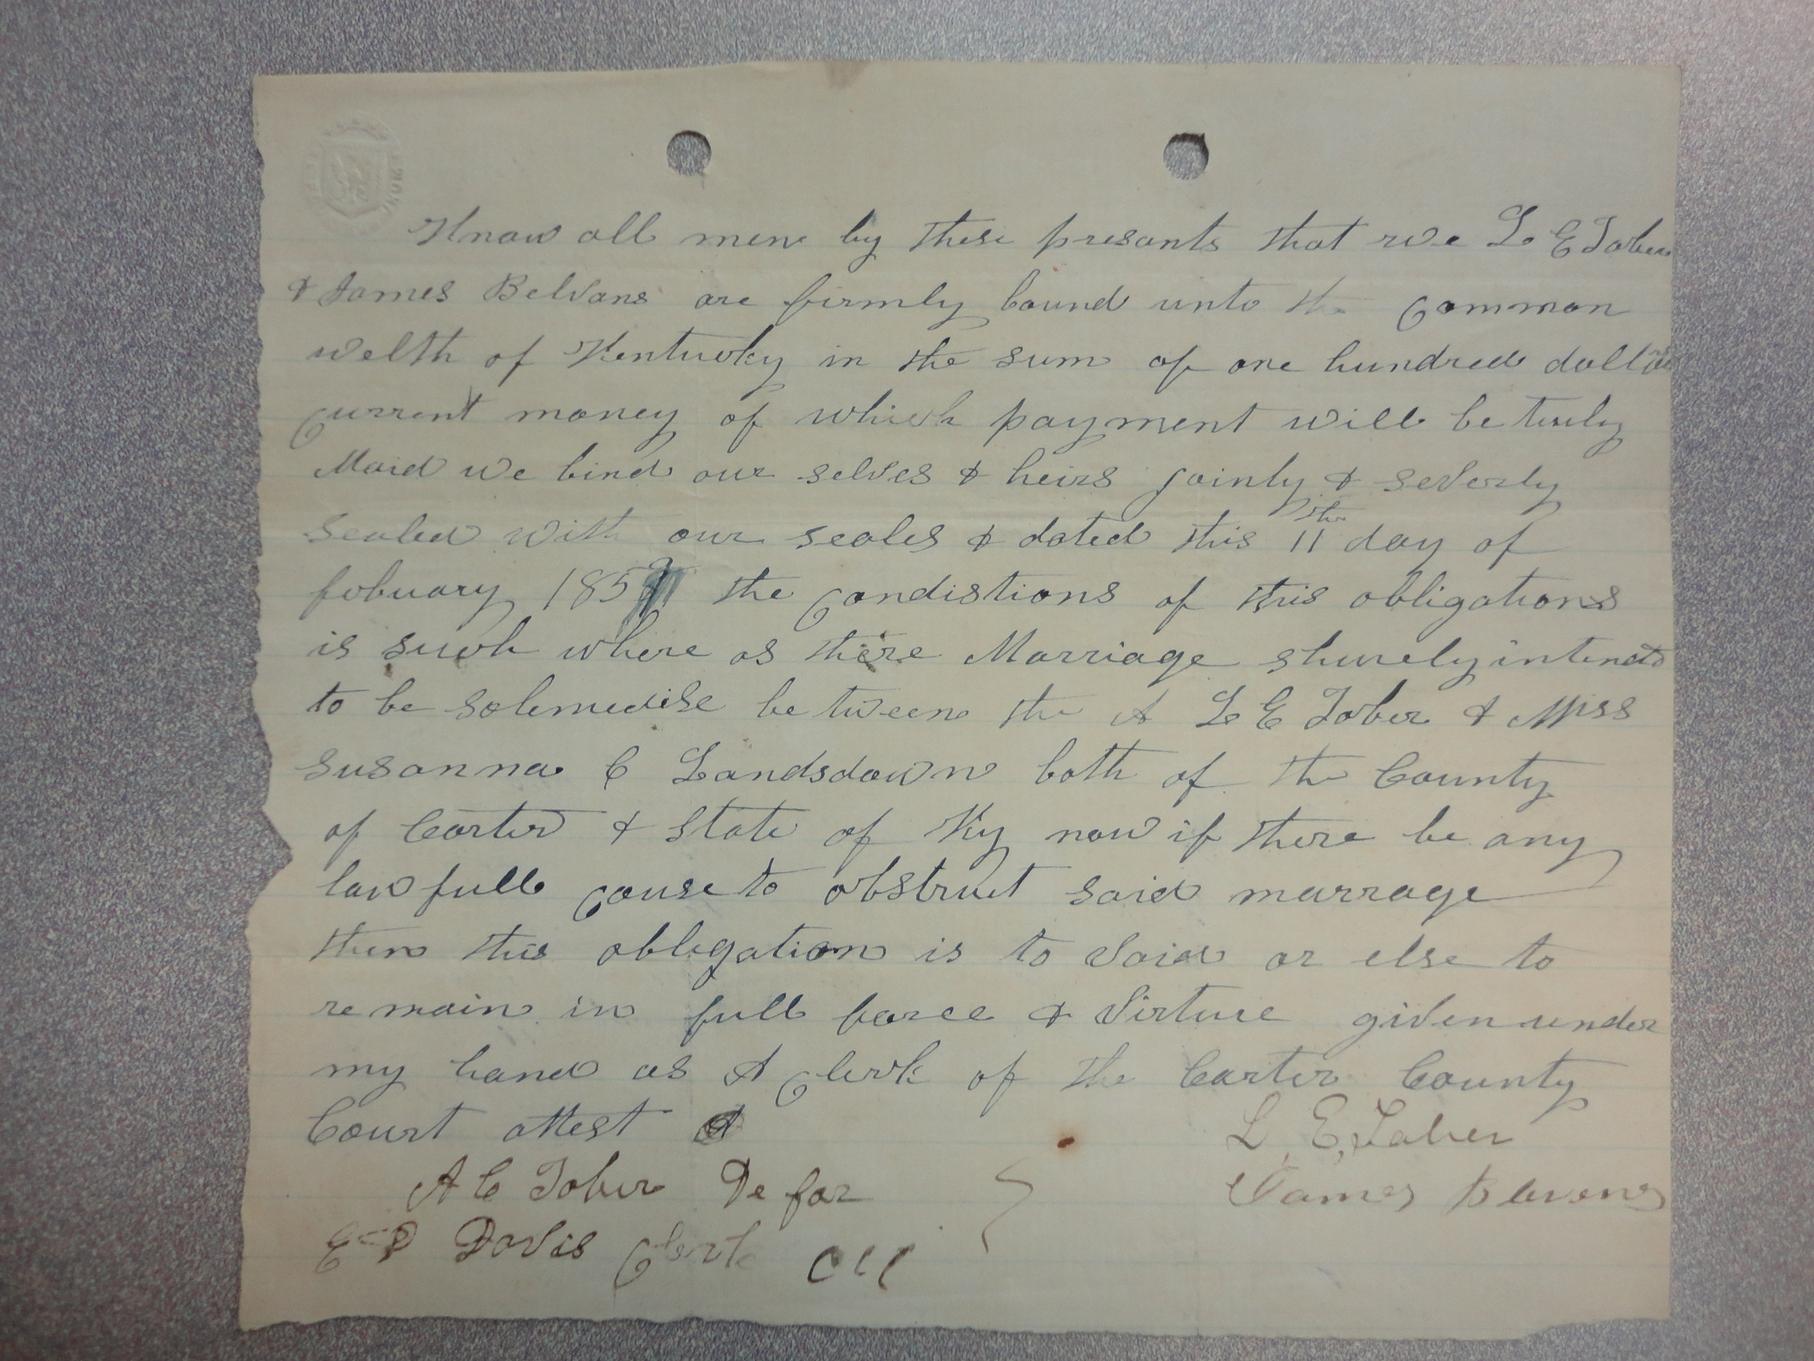 Know all men by these presants that we L E Tober
& James Belvans are firmly bound unto the common
welth of Kentucky in the sum of one hundred dollars
current money of which payment will be truly
Maid we bind our selves & heirs joinly & severly
sealed with our seales & dated this 11th day of
fobuary 185 the condistions of this obligations
is such where as there Marriage shurely intended
to be solemedise between the A L E Tober & Miss
Susanna C Landsdown both of the County
of Carter & State of Ky now if there be any
lawfull couse to obstruct said marrage
then this obligation is to void or else to
remain in full force & virtue given under
my hand as A clerk of the Carter County
Court attest
L. E. Taber
A C Tober De for
James Bevens
Davis Clerk CCC